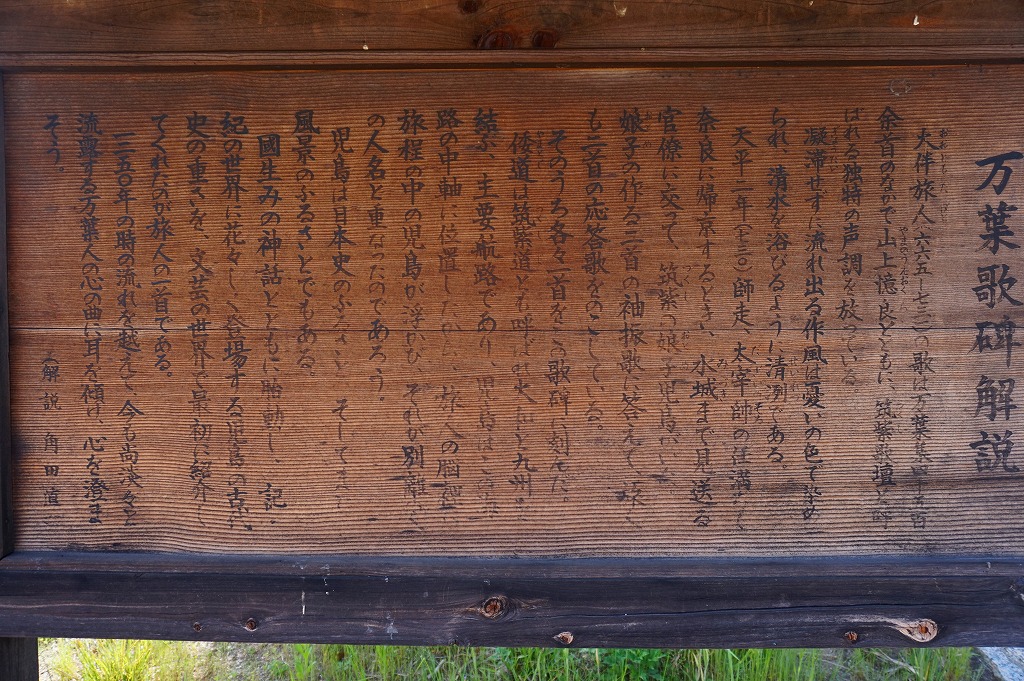 万葉歌碑解説
大伴旅人(六六五-七三一)の歌は万葉集四千五百
余首のなかで山上憶良とともに、筑紫歌壇と呼
ばれる独特の声調を放っている。
凝滞せずに流れ出る作風は憂いの色で染め
られ、清水を浴びるように清冽である。
天平二年(七三〇)師走、大宰帥の任満ちて
奈良に帰京するとき、水城まで見送る
官僚に交って、筑紫の娘子児島がいた。
娘子の作る二首の袖振歌に答えて、旅人
も二首の応答歌をのこしている。
そのうち各々一首をこの歌碑に刻んだ。
倭道は筑紫道とも呼ばれ大和と九州を
結ぶ、主要航路であり、児島は
路の中軸に位置したから、旅人の脳裡に
旅程の中の児島が浮かび、それが別離
の人名と重なったのであろう。
児島は日本史のふるさと、そしてまた
風景のふるさとでもある。
國生みの神話とともに胎動し、記・
紀の世界に花々しく登場する児島の古代
史の重さを、文芸の世界で最初に紹介し
てくれたのが旅人の一首である。
一二五〇年の時の流れを越えて、今も尚淡々と
流露する万葉人の心の曲に耳を傾け、心を澄ま
そう。
解説 角田直一